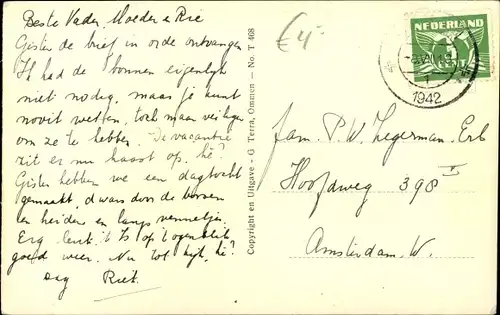 Beste Vader, Moeder & Rie
Gisten de brief in orde ontvangen
Ik had de bonnen eigenlijk
niet nodig, maar je kunt
nooit weten, toch maar veilig
om ze te hebben. De vacantie
zit er nu haast op, hè?
Gister hebben we een dagtocht
gemaakt, dwars door de bossen
en heiden en langs vennetjes.
Erg leuk. 't Is op 't ogenblik
goed weer. Nu tot kijk, hè?
Dag Riet.
€4-
Copyright en Uitgave - G Terra, Ommen - No. T 468
NEDERLAND
1942
Fam. P. W. Zegerman. Erb
Hoofdweg 398 II
Amsterdam. W.